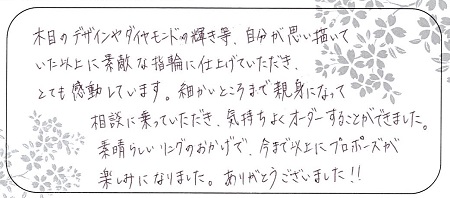 木目のデザインやダイヤモンドの輝き等、自分が思い描いて
いた以上に素敵な指輪に仕上げていただき、
とても感動しています。細かいところまで親身になって
相談に乗っていただき、気持ちよくオーダーすることができました。
素晴らしいリングのおかげで、今まで以上にプロポーズが
楽しみになりました。ありがとうございました!!